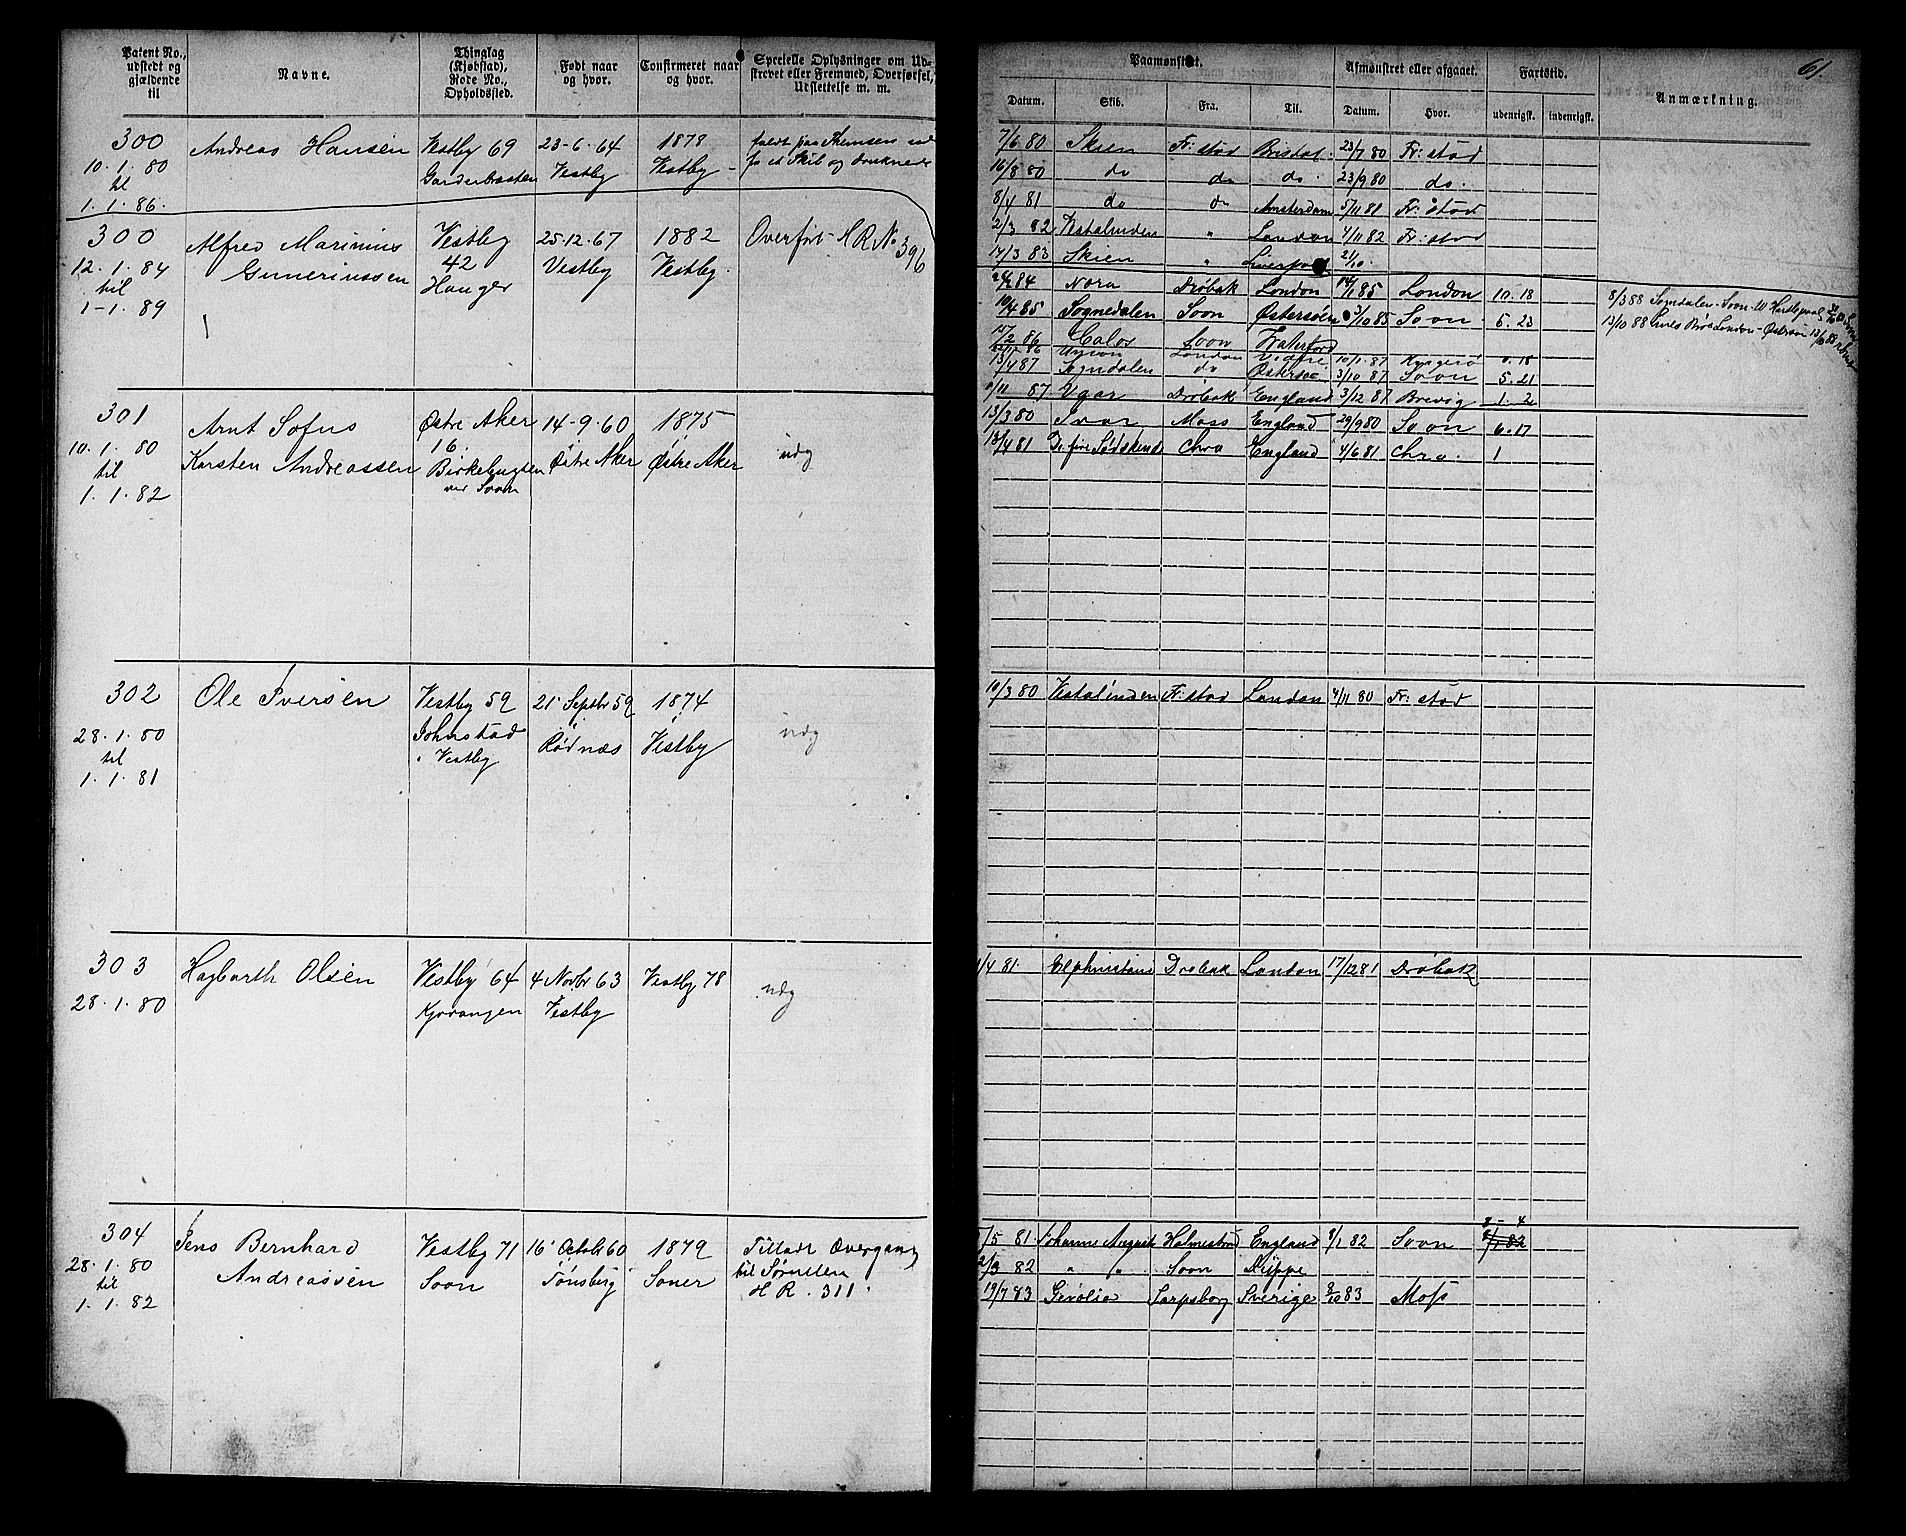 61.
Patent No., udstedt og gjældende til
Navne.
Thinglag (Kjøbstad), Rode No., Opholdssted.
Født naar og hvor.
Confirmeret naar og hvor.
Specielle Oplysninger om Udskrevet eller Fremmed, Overførsel, Udslettelse m. m.
Paamønstret.
Afmønstret eller afgaaet.
Fartstid.
Anmærkning.
Datum. Skib. Fra. Til. Datum. Hvor. udenrigsk. indenrigsk.
300 Andreas Hansen Vestby 69 23-6-64 1878
10.1.80 Vestby Vestby
til
1.1.86.
faldt paa Themsen
fra et Skib og druknede
7/6 80 Skien Fr:stad Bristol 23/7 80 Fr:stad
16/8 80 do do do. 23/9 80 do.
8/4 81 do do Amsterdam 5/11 81 Fr:stad
2/3 82 Vestalinden " London 4/11 82 Fr:stad
17/3 83 Skien " Liverpool 2/10.
300 Alfred Marinius Vestby 25-12-67 1882 Overført H R No 396
12.1.84 Guneriussen 42 Vestby Vestby.
til Hauger
1-1.89
84 Nora Drøbak London 85 London 10.18
10/4 85 Sognedalen Soon Østersøen 3/10 85 Soon 5.23
15/2 86 Calos Soon Waterford
86 London
13/4 87 Sogndalen do Østersøe 3/10 87 Soon 5.21
11 87 Ygar Drøbak England 3/12 87 Brevig 1.2
8/3 88 Sogndalen-Soon-W Hartlepool
13/10 88 London-Østersøen
301 Arnt Sofus Østre Aker 14-9-60 1875
10.1.80 Karsten Andreassen 16. Østre Aker Østre Aker udg
til Birkebugten
1.1.82 ved Soon
13/3 80 Ivar Moss England 29/9 80 Soon 6.17
13/4 81 De fire Sødskende Chra England 4/6 81 Chra. 1
302 Ole Iversen Vestby 59 21 Septbr 59 1874
28.1.80 Johnstad Rødnæs Vestby udg
til i Vestby
1.1.81
10/3 80 Vestalinden Fr:stad London 4/11 80 Fr:stad
303 Hagbarth Olsen Vestby 64 4 Novbr 63 Vestby 78 udg
28.1.80 Krovangen Vestby
1/4 81. Elphinstone Drøbak London 17/12 81 Drøbak
304 Jens Bernhard Vestby 71 16 Octobr 60 1879 Tilladt Overgang
28.1.80 Andreassen Soon Tønsberg Soner til Sørullen
til H R. 311.
1.1.82
7/5 81 Johanne Auguste Holmestrand England 8/1 82 Soon 8-4
2/3 82 " " Soon Dieppe
19/7 83 Gevolia Sarpsborg Sverige 9/10 83 Moss